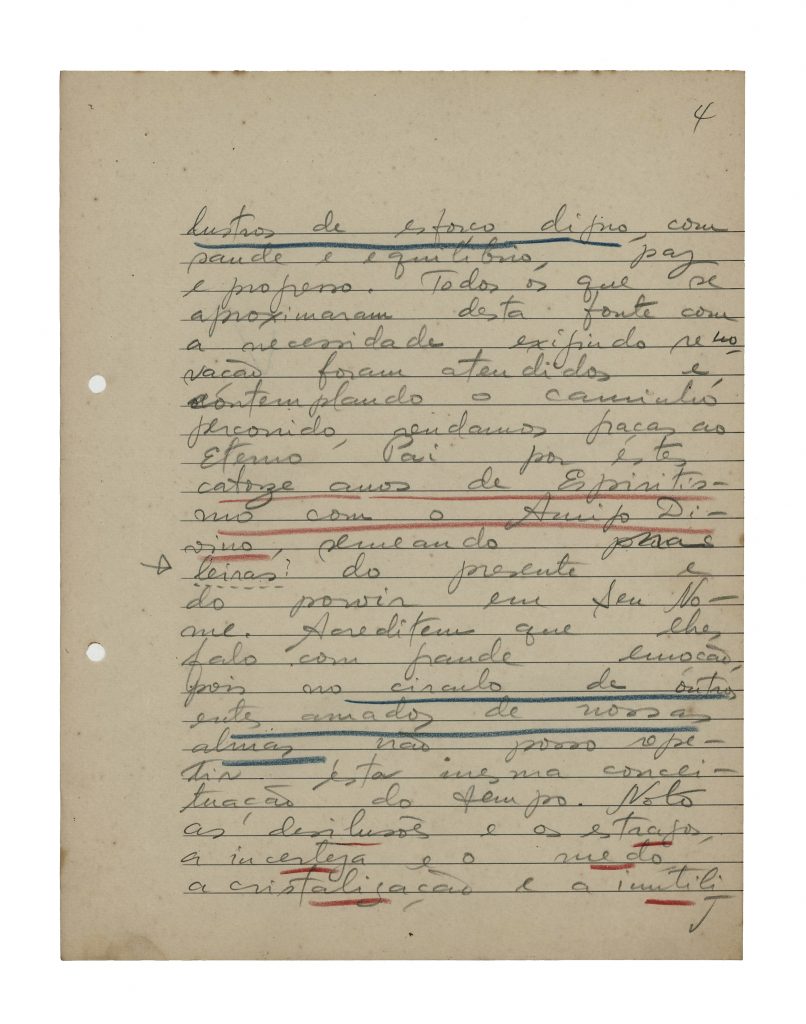 4
lustros de esforço digno, com
saude e equilibrio, paz
e progresso. Todos os que se
aproximaram desta fonte com
a necessidade exigindo reno
vação foram atendidos e,
contemplando o caminho
percorrido, rendamos graças ao
Eterno Pai por éstes
catorze anos de Espiritis-
mo com o Amigo Di-
vino, semeando
leiras? do presente e
do porvir em Seu No-
me. Acreditem que lhes
falo com grande emoção,
pois no circulo de outros
entes amados de nossas
almas não posso repe-
tir ésta mesma concei-
tuação do tempo. Noto
as desilusões e os estragos,
a incerteza e o medo,
a cristalização e a inutili